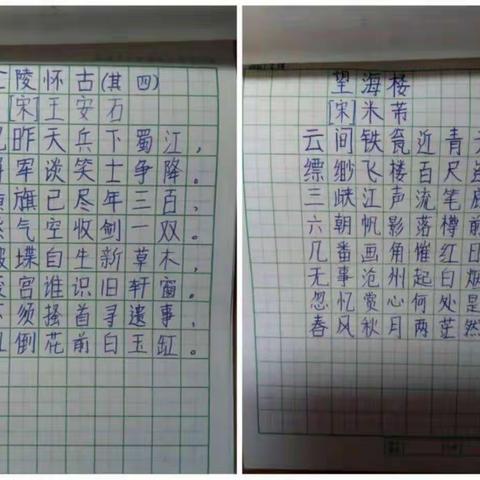 陵怀古(其四)
[宋]王安石
昨天兵下蜀江，
军谈笑士争降。
旗已尽年三百，
气空收剑一双。
堞自生新草木，
宫谁识旧轩窗。
须搔首寻遗事，
倒花前白玉缸。
望海楼
[宋]米芾
云间铁瓮近青天
缥缈飞楼百尺
三峡江声流笔底
六朝帆影落樽前
几番画角催红日
无事沧州起白烟
忽忆赏心何处是
春风秋月两茫然